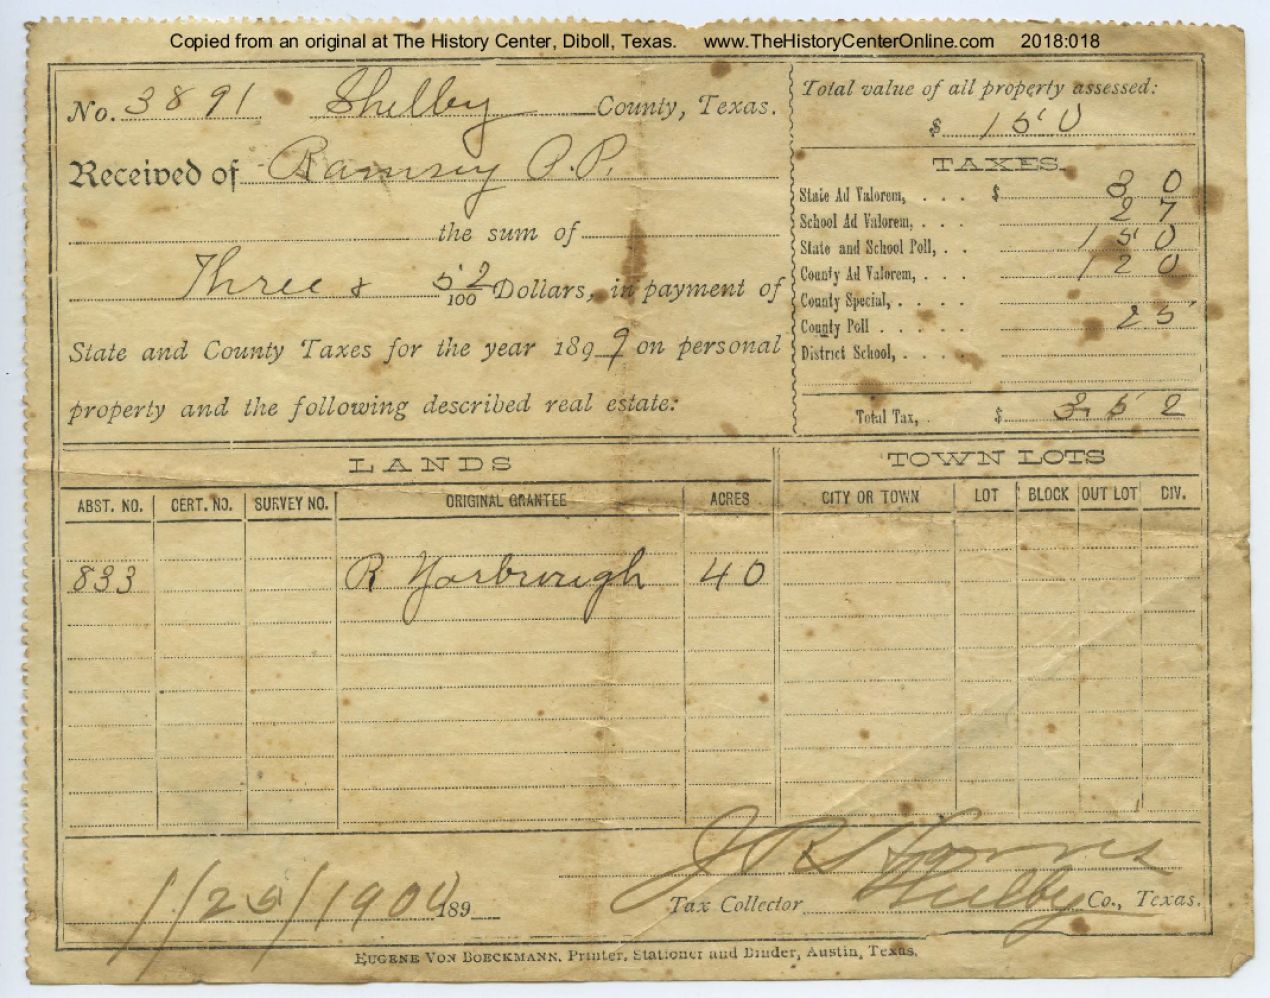 Copied from an original at The History Center, Diboll, Texas. www.TheHistoryCenterOnline.com 2018:018
No. 3891 Shelby County, Texas.
Received of Ramsey P.P.
the sum of
Three & 52/100 Dollars, in payment of
State and County Taxes for the year 1899 on personal
property and the following described real estate:
Total value of all property assessed:
$ 150
TAXES.
State Ad Valorem, . . . $ 30
School Ad Valorem, . . . 27
State and School Poll, . . 150
County Ad Valorem, . . . 120
County Special, . . . .
County Poll . . . . . 25
District School, . . . .
Total Tax, . $ 3.52
LANDS
ABST. NO. CERT. NO. SURVEY NO. ORIGINAL GRANTEE ACRES
833 R Yorbrough 40
TOWN LOTS
CITY OR TOWN LOT BLOCK OUT LOT DIV.
J R
1/25/1900 189
Tax Collector Shelby Co., Texas.
EUGENE VON BOECKMANN, Printer, Stationer and Binder, Austin, Texas.